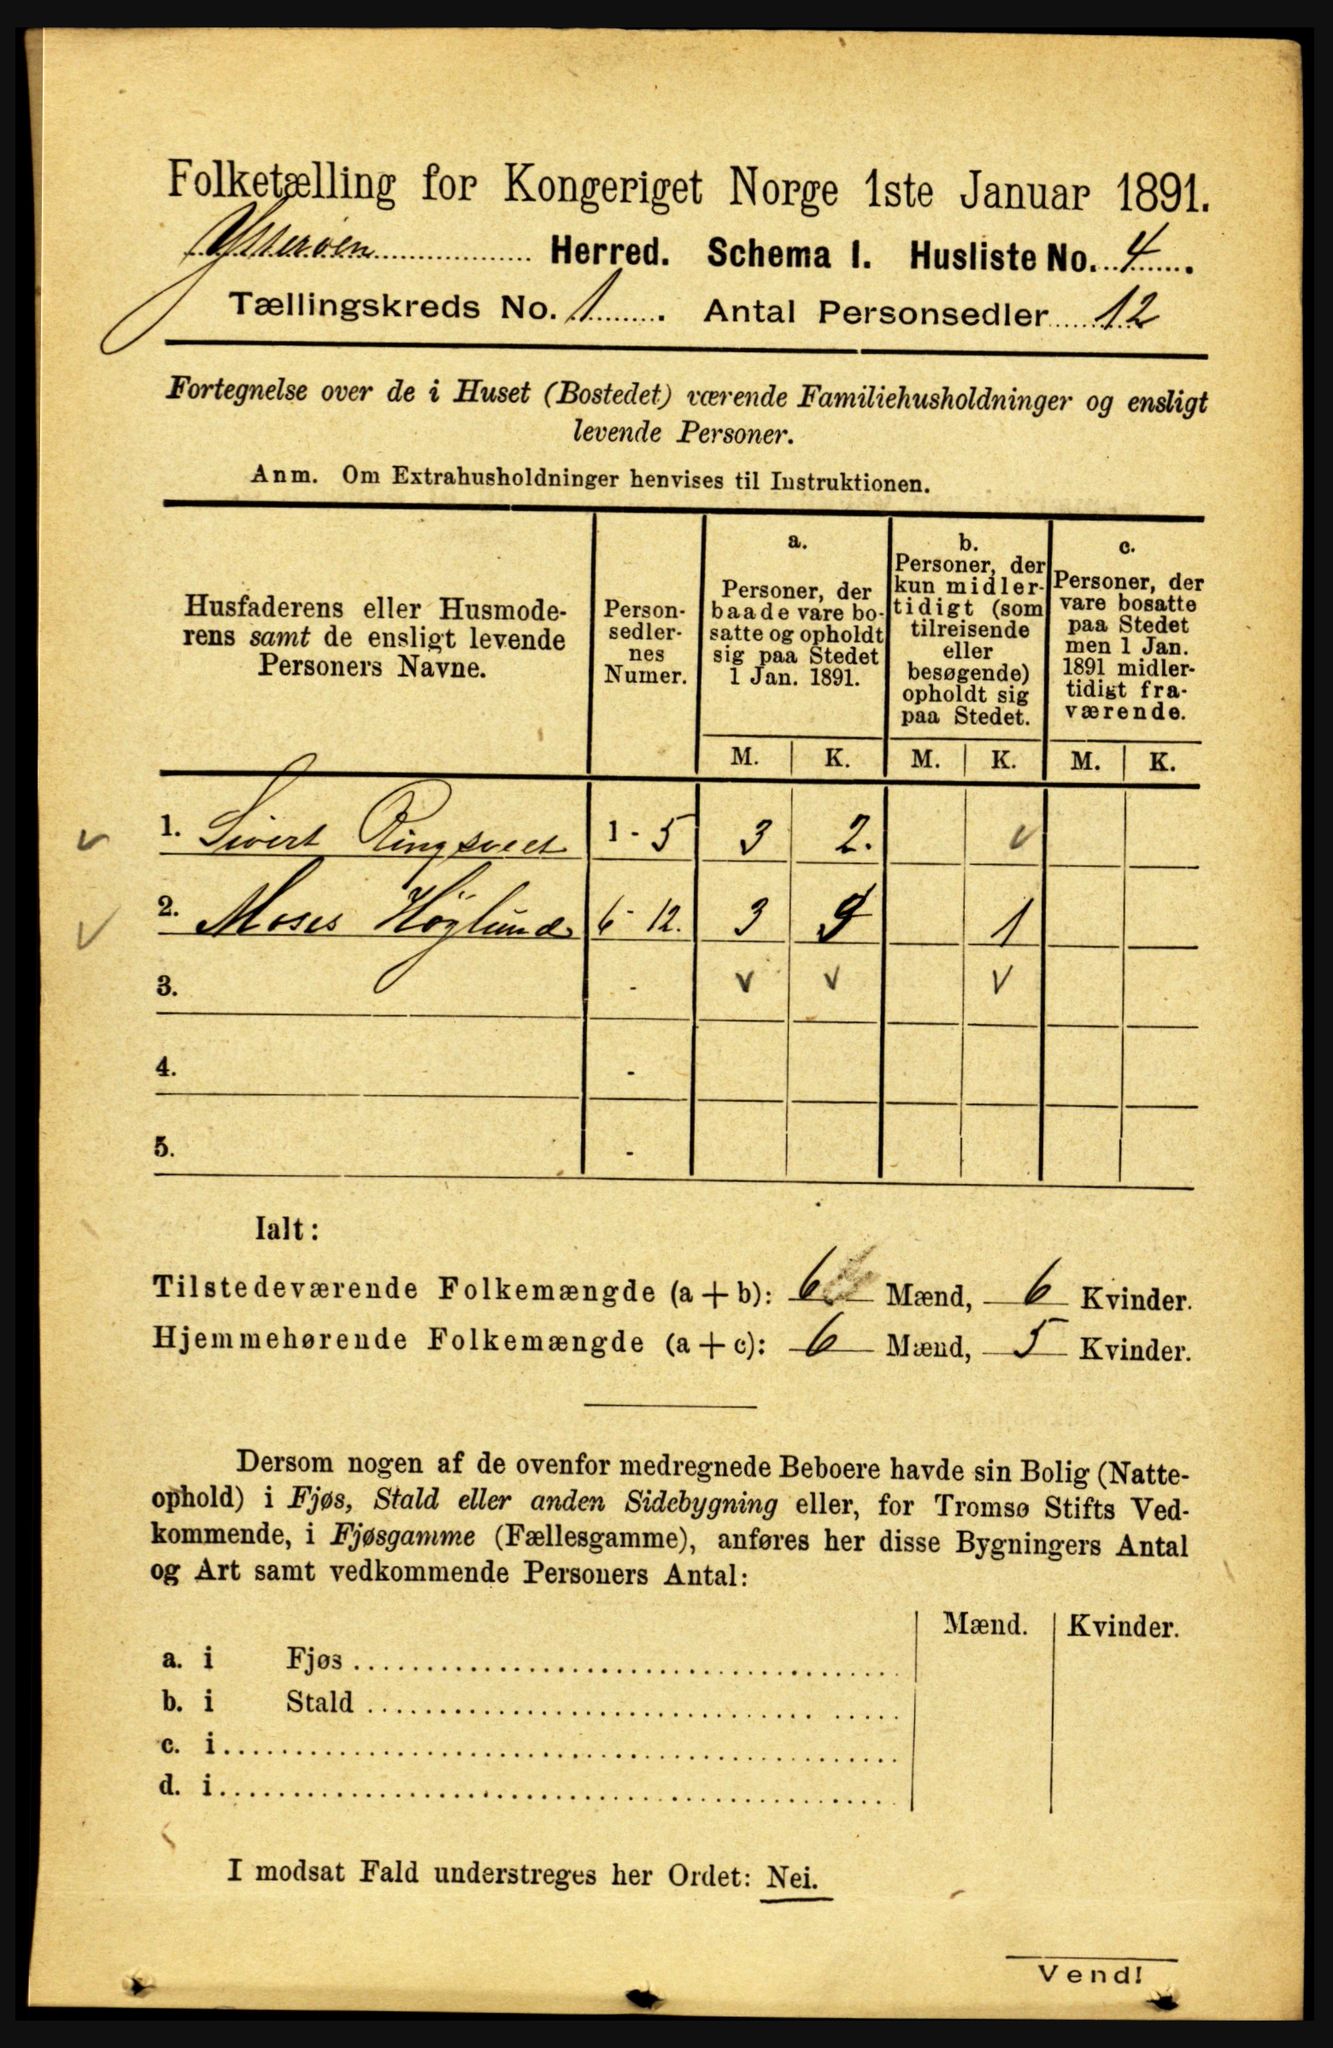 Folketælling for Kongeriget Norge 1ste Januar 1891.
Ytterøen Herred. Schema I. Husliste No. 4.
Tællingskreds No. 1. Antal Personsedler 12
Fortegnelse over de i Huset (Bostedet) værende Familiehusholdninger og ensligt
levende Personer.
Anm. Om Extrahusholdninger henvises til Instruktionen.
Husfaderens eller Husmode-
rens samt de ensligt levende
Personers Navne.
Person-
sedler-
nes
Numer.
a.
Personer, der
baade vare bo-
satte og opholdt
sig paa Stedet
1 Jan. 1891.
b.
Personer, der
kun midler-
tidigt (som
tilreisende
eller
besøgende)
opholdt sig
paa Stedet.
c.
Personer, der
vare bosatte
paa Stedet
men 1 Jan.
1891 midler-
tidigt fra-
værende.
M. K. M. K. M. K.
1. Sivert 1 - 5 3 2.
2. Moses Höglund 6 - 12. 3 1
3. -
4. -
5. -
Ialt:
Tilstedeværende Folkemængde (a + b): 6 Mænd, 6 Kvinder.
Hjemmehørende Folkemængde (a + c): 6 Mænd, 5 Kvinder.
Dersom nogen af de ovenfor medregnede Beboere havde sin Bolig (Natte-
ophold) i Fjøs, Stald eller anden Sidebygning eller, for Tromsø Stifts Ved-
kommende, i Fjøsgamme (Fællesgamme), anføres her disse Bygningers Antal
og Art samt vedkommende Personers Antal:
Mænd. Kvinder.
a. i Fjøs
b. i Stald
c. i
d. i
I modsat Fald understreges her Ordet: Nei.
Vend!